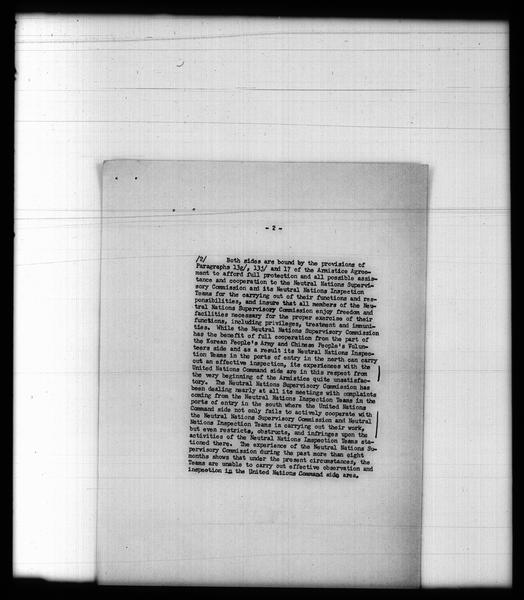 - 2 -
/2/ Both sides are bound by the provisions of
Paragraphs 13g/, 13j/ and 17 of the Armistice Agree-
ment to afford full protection and all possible assis-
tance and cooperation to the Neutral Nations Supervi-
sory Commission and its Neutral Nations Inspection
Teams for the carrying out of their functions and res-
ponsibilities, and insure that all members of the Neu-
tral Nations Supervisory Commission enjoy freedom and
facilities necessary for the proper exercise of their
functions, including privileges, treatment and immuni-
ties. While the Neutral Nations Supervisory Commission
has the benefit of full cooperation from the part of
the Korean People's Army and Chinese People's Volun-
teers side and as a result its Neutral Nations Inspec-
tion Teams in the ports of entry in the north can carry
out an effective inspection, its experiences with the
United Nations Command side are in this respect from
the very beginning of the Armistice quite unsatisfac-
tory. The Neutral Nations Supervisory Commission has
been dealing nearly at all its meetings with complaints
coming from the Neutral Nations Inspection Teams in the
ports of entry in the south where the United Nations
Command side not only fails to actively cooperate with
the Neutral Nations Supervisory Commission and Neutral
Nations Inspection Teams in carrying out their work,
but even restricts, obstructs, and infringes upon the
activities of the Neutral Nations Inspection Teams sta-
tioned there. The experience of the Neutral Nations Su-
pervisory Commission during the past more than eight
months shows that under the present circumstances, the
Teams are unable to carry out effective observation and
inspection in the United Nations Command side area.